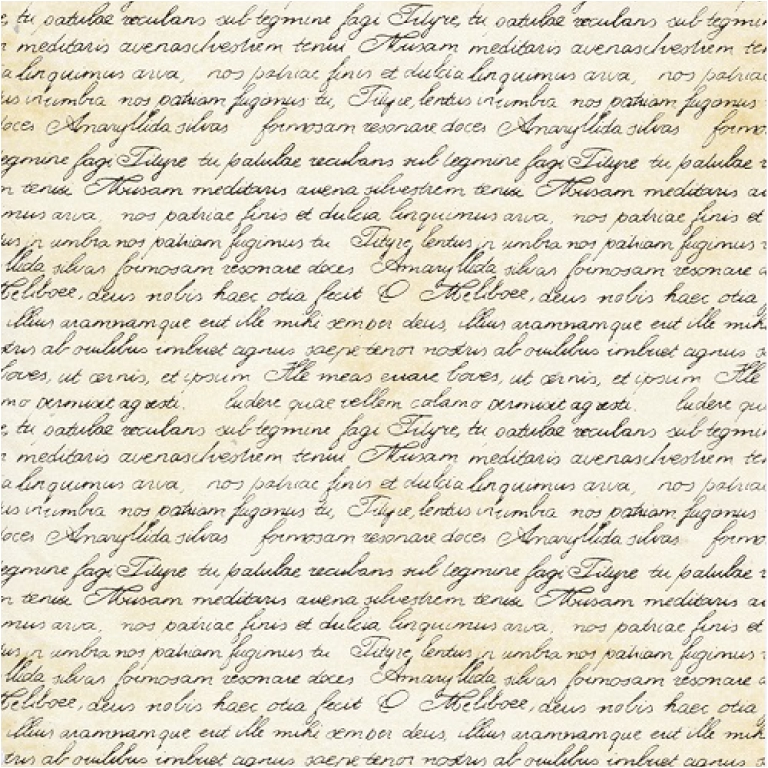 tu patulae reculans sub tegmine fagi Tityre, tu patulae reculans sub tegmin
meditaris avenasilvestrem tenui Musam meditaris avenasilvestrem te
a linquimus arva, nos patriae finis et dulcia linquimus arva, nos patriae
us inumbra nos patriam fugimus tu, Tityre, lentus inumbra nos patriam fugimus
doces Amaryllida silvas formosam resonare doces Amaryllida silvas formo
egmine fagi Tityre tu patulae reculans sub tegmine fagi Tityre tu patulae r
n tenui Musam meditaris avena silvestrem tenui Musam meditaris av
mus arva, nos patriae finis et dulcia linquimus arva, nos patriae finis et
us in umbra nos patriam fugimus tu Tityre, lentus in umbra nos patriam fugimus
llida silvas formosam resonare doces Amaryllida silvas formosam resonare d
Meliboee, deus nobis haec otia fecit O Meliboee, deus nobis haec otia
illius aramnamque erit ille mihi semper deus, illius aramnamque erit ille mih
stris ab ovilibus imbuet agnus saepe tenor nostris ab ovilibus imbuet agnus
boves, ut cernis, et ipsum Ille meas errare boves, ut cernis, et ipsum Ille
mo permisit agresti. ludere quae vellem calamo permisit agresti. ludere qu
tu patulae reculans sub tegmine fagi Tityre, tu patulae reculans sub tegmin
meditaris avenasilvestrem tenui Musam meditaris avenasilvestrem te
a linquimus arva, nos patriae finis et dulcia linquimus arva, nos patriae
us inumbra nos patriam fugimus tu, Tityre, lentus inumbra nos patriam fugimus
doces Amaryllida silvas formosam resonare doces Amaryllida silvas formo
egmine fagi Tityre tu patulae reculans sub tegmine fagi Tityre tu patulae r
n tenui Musam meditaris avena silvestrem tenui Musam meditaris av
mus arva, nos patriae finis et dulcia linquimus arva, nos patriae finis et
us in umbra nos patriam fugimus tu Tityre, lentus in umbra nos patriam fugimus
llida silvas formosam resonare doces Amaryllida silvas formosam resonare d
Meliboee, deus nobis haec otia fecit O Meliboee, deus nobis haec otia
illius aramnamque erit ille mihi semper deus, illius aramnamque erit ille mih
stris ab ovilibus imbuet agnus saepe tenor nostris ab ovilibus imbuet agnus